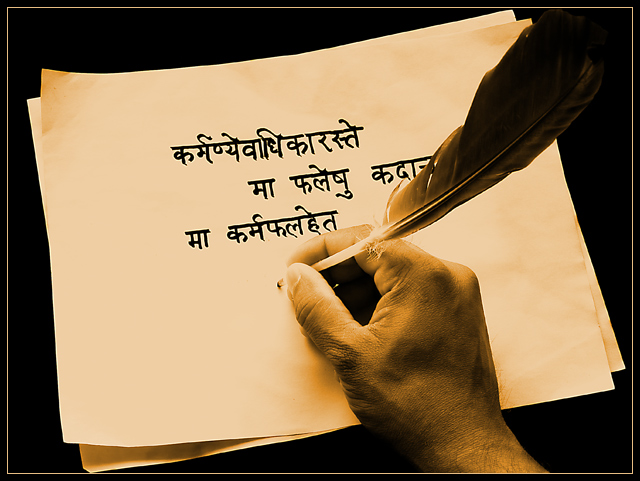 कर्मण्येवाधिकारस्ते
मा फलेषु
मा कर्मफलहेत